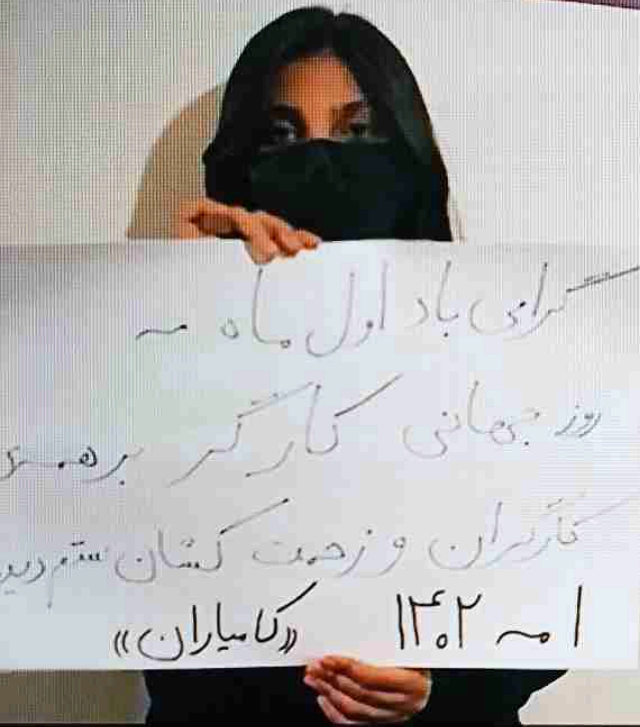 گرامی باد اول ماه مه
روز جهانی کارگر بر همه
کارگران و زحمت کشان ستم دیده
۱ مه ۱۴۰۲ «کامیاران»